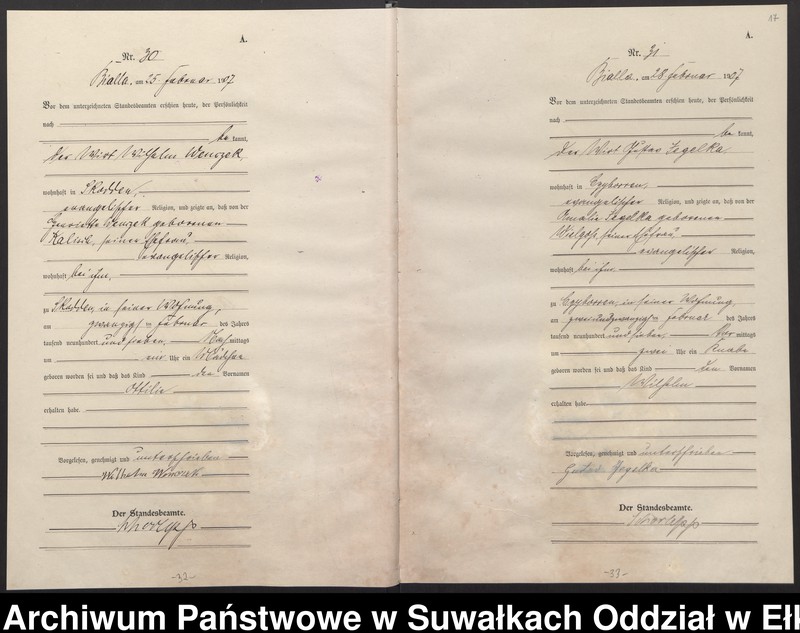 A.
Nr. 30
Bialla, am 25 Februar 1907
Vor dem unterzeichneten Standesbeamten erschien heute, der Persönlichkeit
nach
be kannt,
der Wirt Wilhelm Wenczek,
wohnhaft in Skodden,
evangelischer Religion, und zeigte an, daß von der
Henriette Wenczek geborenen
seiner Ehefrau
evangelischer Religion,
wohnhaft bei ihm,
zu Skodden, in seiner Wohnung,
am zwanzigsten Februar des Jahres
tausend neunhundert und sieben, Nach mittags
um ein Uhr ein Mädchen
geboren worden sei und daß das Kind den Vornamen
Ottilie
erhalten habe.
Vorgelesen, genehmigt und unterschrieben
Wilhelm Wenczek
Der Standesbeamte.
-32-
17
A.
Nr. 31
Bialla, am 28 Februar 1907
Vor dem unterzeichneten Standesbeamten erschien heute, der Persönlichkeit
nach
be kannt,
der Wirt Gustav Jegelka
wohnhaft in
evangelischer Religion, und zeigte an, daß von der
Amalie Jegelka geborenen
seiner Ehefrau
evangelischer Religion,
wohnhaft bei ihm
zu in seiner Wohnung
am zweiundzwanzigsten Februar des Jahres
tausend neunhundert und sieben, Vor mittags
um zwei Uhr ein Knabe
geboren worden sei und daß das Kind den Vornamen
Wilhelm
erhalten habe.
Vorgelesen, genehmigt und unterschrieben
Gustav Jegelka
Der Standesbeamte.
-33-
Archiwum Państwowe w Suwałkach Oddział w Ełk